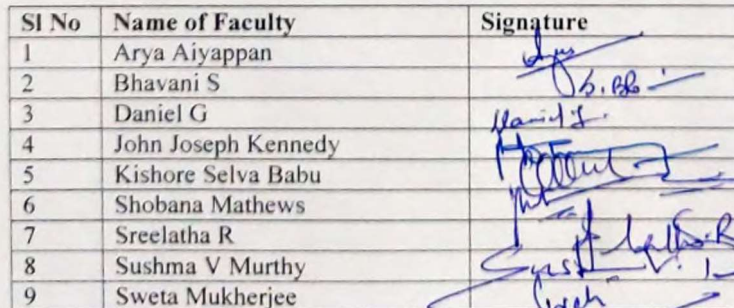 Sl No Name of Faculty Signature
1 Arya Aiyappan
2 Bhavani S S. Bh
3 Daniel G Daniel G.
4 John Joseph Kennedy
5 Kishore Selva Babu
6 Shobana Mathews
7 Sreelatha R
8 Sushma V Murthy
9 Sweta Mukherjee